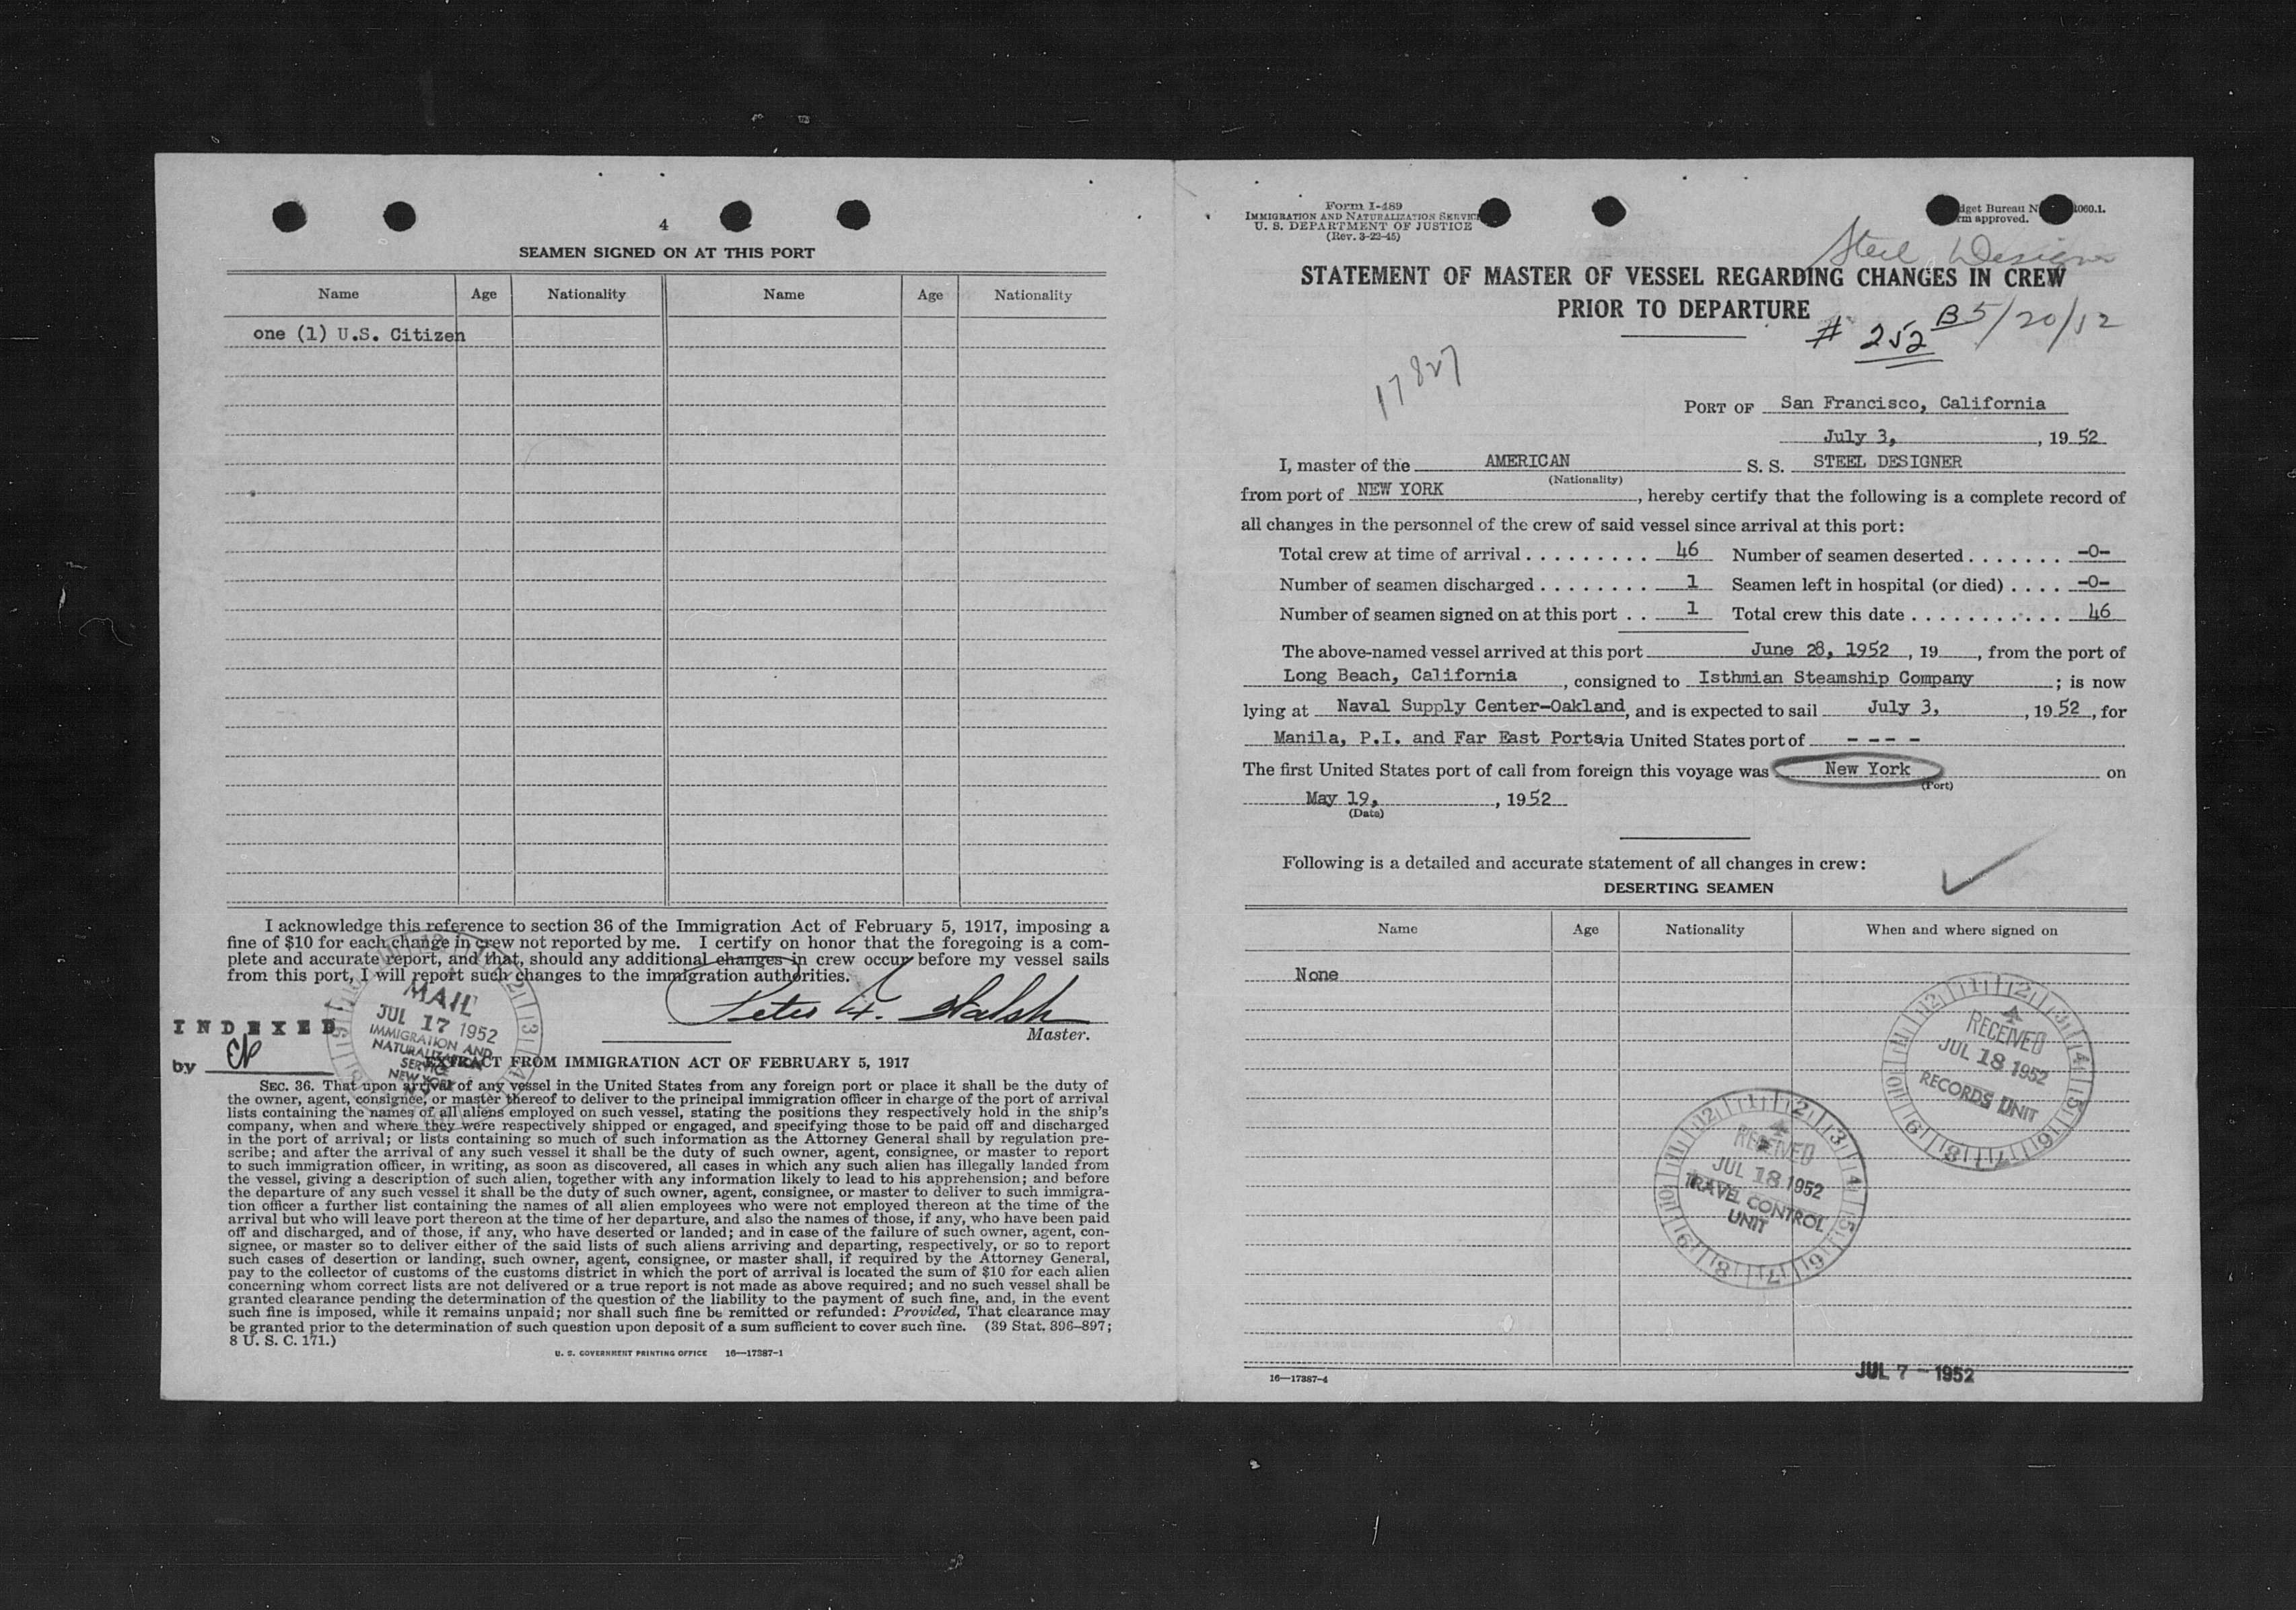 4
SEAMEN SIGNED ON AT THIS PORT
Name Age Nationality Name Age Nationality
one (1) U.S. Citizen
I acknowledge this reference to section 36 of the Immigration Act of February 5, 1917, imposing a
fine of $10 for each change in crew not reported by me. I certify on honor that the foregoing is a com-
plete and accurate report, and that, should any additional changes in crew occur before my vessel sails
from this port, I will report such changes to the immigration authorities.
MAIL
JUL 17 1952
IMMIGRATION AND
NATURALIZATION
SERVICE
NEW YORK
Walsh
Master.
INDEXED
by
EXTRACT FROM IMMIGRATION ACT OF FEBRUARY 5, 1917
SEC. 36. That upon arrival of any vessel in the United States from any foreign port or place it shall be the duty of
the owner, agent, consignee, or master thereof to deliver to the principal immigration officer in charge of the port of arrival
lists containing the names of all aliens employed on such vessel, stating the positions they respectively hold in the ship's
company, when and where they were respectively shipped or engaged, and specifying those to be paid off and discharged
in the port of arrival; or lists containing so much of such information as the Attorney General shall by regulation pre-
scribe; and after the arrival of any such vessel it shall be the duty of such owner, agent, consignee, or master to report
to such immigration officer, in writing, as soon as discovered, all cases in which any such alien has illegally landed from
the vessel, giving a description of such alien, together with any information likely to lead to his apprehension; and before
the departure of any such vessel it shall be the duty of such owner, agent, consignee, or master to deliver to such immigra-
tion officer a further list containing the names of all alien employees who were not employed thereon at the time of the
arrival but who will leave port thereon at the time of her departure, and also the names of those, if any, who have been paid
off and discharged, and of those, if any, who have deserted or landed; and in case of the failure of such owner, agent, con-
signee, or master so to deliver either of the said lists of such aliens arriving and departing, respectively, or so to report
such cases of desertion or landing, such owner, agent, consignee, or master shall, if required by the Attorney General,
pay to the collector of customs of the customs district in which the port of arrival is located the sum of $10 for each alien
concerning whom correct lists are not delivered or a true report is not made as above required; and no such vessel shall be
granted clearance pending the determination of the question of the liability to the payment of such fine, and, in the event
such fine is imposed, while it remains unpaid; nor shall such fine be remitted or refunded: Provided, That clearance may
be granted prior to the determination of such question upon deposit of a sum sufficient to cover such fine. (39 Stat. 896–897;
8 U. S. C. 171.)
U. S. GOVERNMENT PRINTING OFFICE 16—17387-1
Form I-489
IMMIGRATION AND NATURALIZATION SERVICE
U. S. DEPARTMENT OF JUSTICE
(Rev. 3-22-45)
approved.
Steel Designer
STATEMENT OF MASTER OF VESSEL REGARDING CHANGES IN CREW
PRIOR TO DEPARTURE
# 252 B5/20/52
17827
PORT OF San Francisco, California
July 3, , 19 52
I, master of the AMERICAN S. S. STEEL DESIGNER
(Nationality)
from port of NEW YORK , hereby certify that the following is a complete record of
all changes in the personnel of the crew of said vessel since arrival at this port:
Total crew at time of arrival . . . . . . . . . 46 Number of seamen deserted . . . . . . . -0-
Number of seamen discharged . . . . . . . . 1 Seamen left in hospital (or died) . . . . -0-
Number of seamen signed on at this port . . 1 Total crew this date . . . . . . . . . . . 46
The above-named vessel arrived at this port June 28, 1952 , 19 , from the port of
Long Beach, California , consigned to Isthmian Steamship Company ; is now
lying at Naval Supply Center-Oakland, and is expected to sail July 3, , 19 52 , for
Manila, P.I. and Far East Ports via United States port of - - - -
The first United States port of call from foreign this voyage was New York on
(Port)
May 19, , 1952
(Date)
Following is a detailed and accurate statement of all changes in crew:
DESERTING SEAMEN
Name Age Nationality When and where signed on
None
RECEIVED
JUL 18 1952
RECORDS UNIT
RECEIVED
JUL 18 1952
TRAVEL CONTROL
UNIT
16—17387-4
JUL 7 - 1952